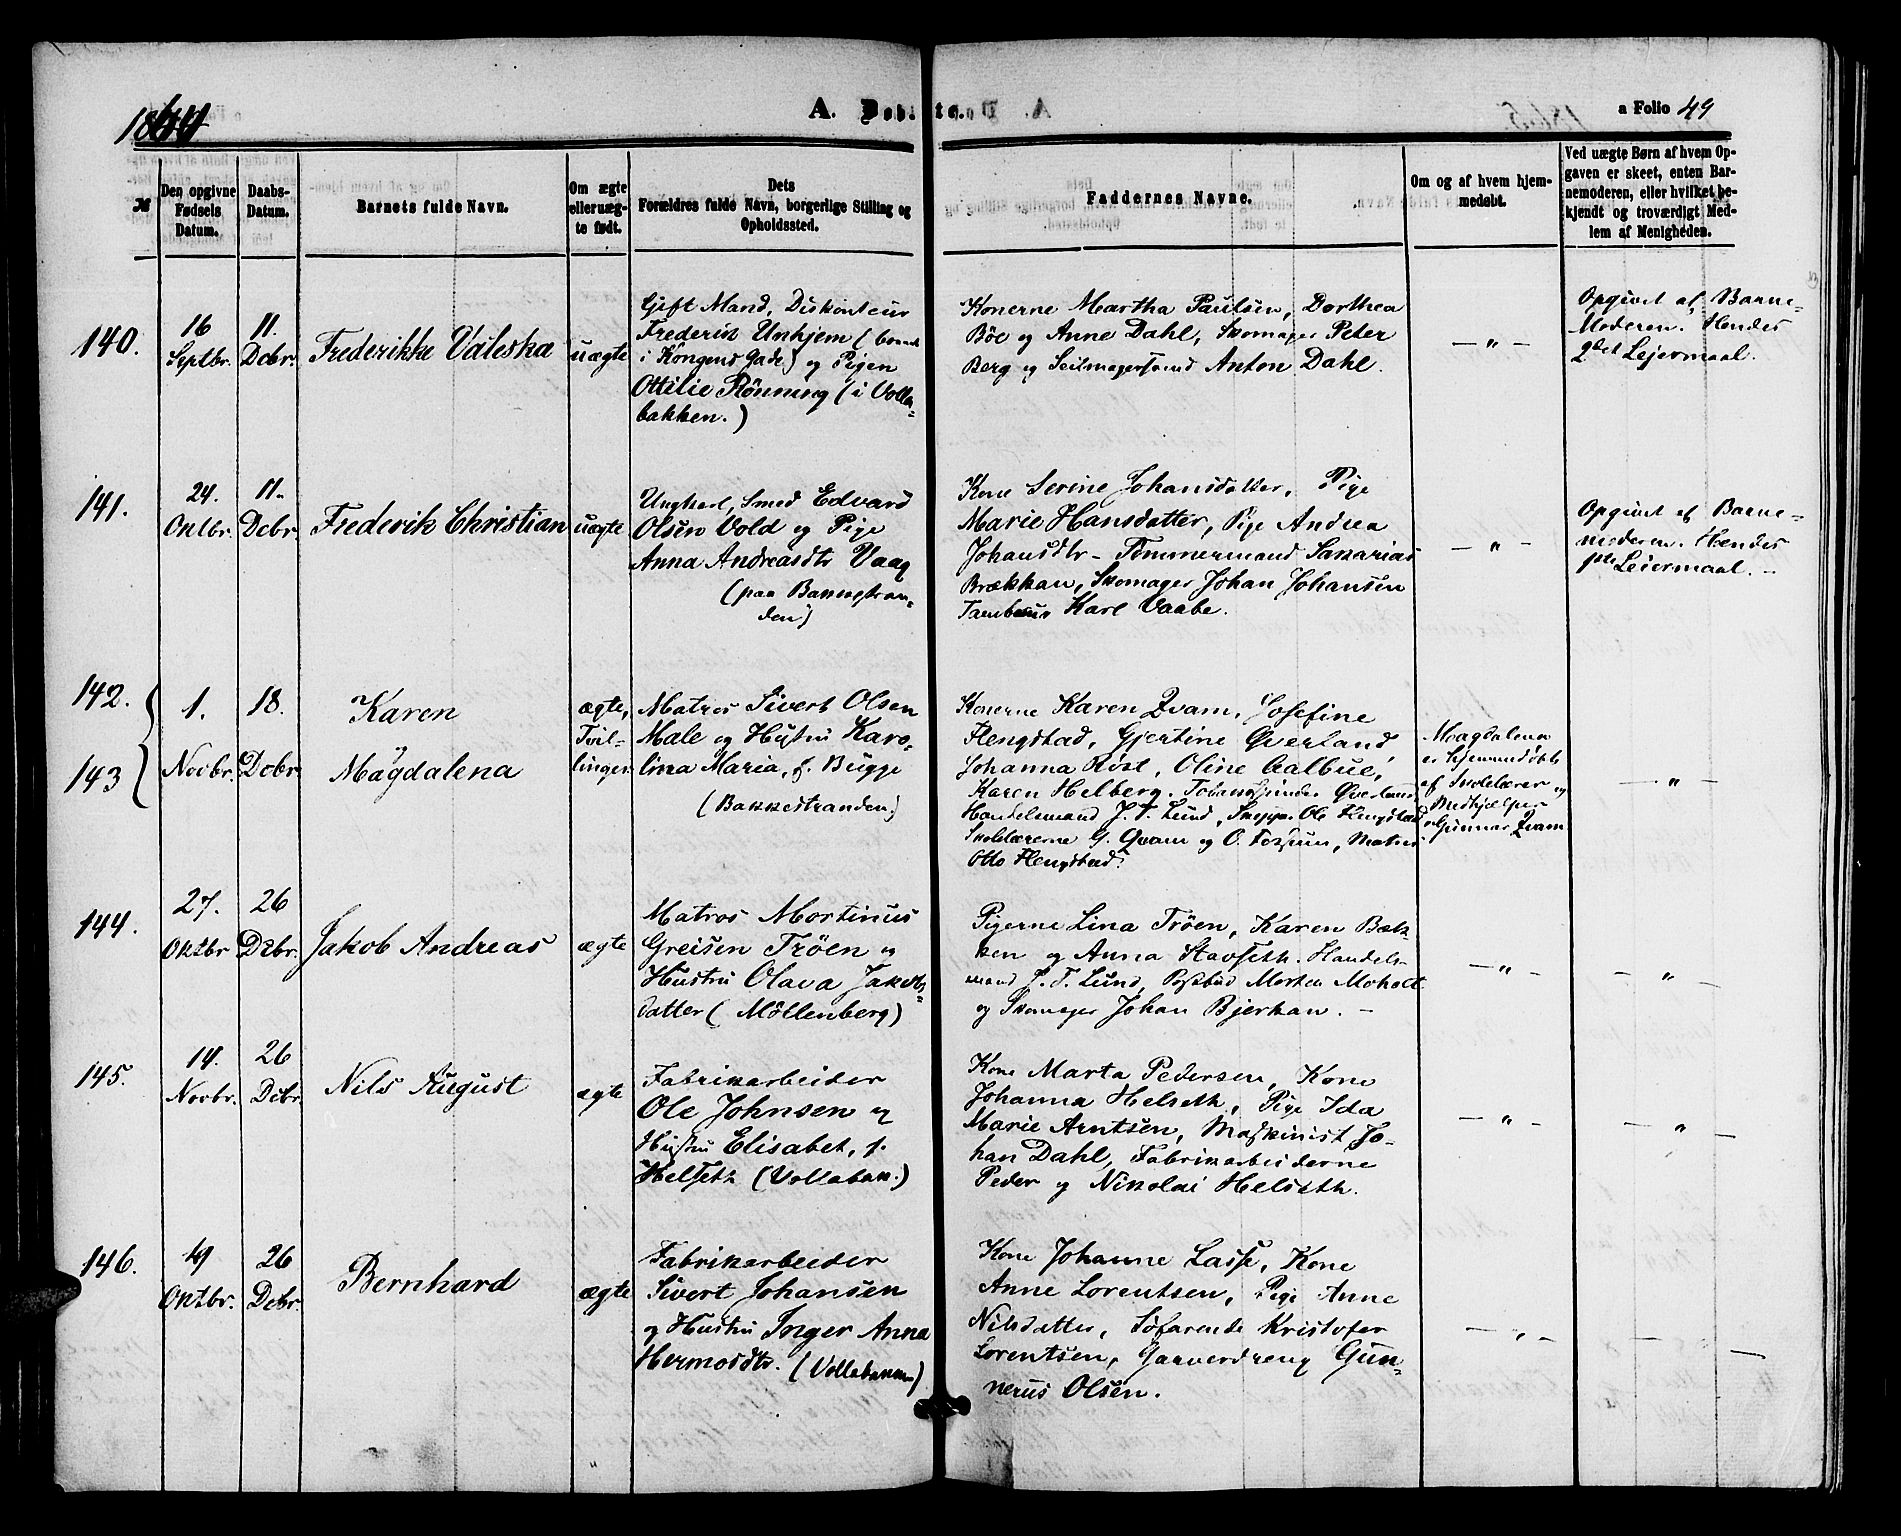 1864
A. Døbte.
a Folio 49
№
Den opgivne Fødsels Datum.
Daabs-Datum.
Barnets fulde Navn.
Om ægte eller uægte født.
Dets Forældres fulde Navn, borgerlige Stilling og Opholdssted.
Faddernes Navne.
Om og af hvem hjemmedøbt.
Ved uægte Børn af hvem Op-
gaven er skeet, enten Bar-
nemoderen, eller hvilket be-
kjendt og troværdigt Med-
lem af Menigheden.
140.
16 Septbr.
11. Debr.
Frederikke Valeska
uægte
Gift Mand, Diskonteur
Frederik Unhjem (
i Kongens Gade) og Pigen
Ottilie Rönning (i Volla-
bakken.)
Konerne Martha Paulsen, Dorthea
Böe og Anne Dahl, Skomager Peter
Berg og Seilmagersvend Anton Dahl.
— " —
Opgivet af Barne-
Moderen. Hendes
2det Lejermaal.
141.
24. Oktbr.
11. Debr.
Frederik Christian
uægte
Ungkarl, Smed Edvard
Olsen Vold og Pige
Anna Andreasdtr Vaag
(paa Bakkestran-
den)
Kone Serine Johansdatter, Pige
Marie Hansdatter, Pige Andrea
Johansdtr - Tømmermand Sakarias
Brækkan, Skomager Johan Johansen
Tambour Karl Vaabe.
— " —
Opgivet af Barne-
moderen. Hendes
1ste Leiermaal. -
142.
143
1. Novbr.
18. Debr.
Karen
Magdalena
ægte,
Tvil-
linger
Matros Sivert Olsen
Male og Hustru Karo-
lina Maria, f. Bugge
(Bakkestranden.)
Konerne Karen Qvam, Josefine
Flengstad, Gjertine Øverland
Johanna Röst, Oline Aalbue,
Karen Helberg. Tobaksspinder Øverland,
Handelsmand J. T. Lund, Skipper Ole Flengstad
Skolelærerne G. Qvam og O. Fossum, Matros
Otto Flengstad.
Magdalena
er hjemmedöbt
af Skolelærer og
Medhjælper
Gunnar Qvam
— " —
144.
27. Oktbr
26 Debr.
Jakob Andreas
ægte
Matros Mortinus
Greisen Tröen og
Hustru Olava Jakobs-
datter (Möllenberg)
Pigerne Lina Tröen, Karen Bak-
ken og Anna Stavseth. Handels-
mand J. T. Lund, Postbud Morten Moholt
og Skomager Johan Bjerkan. -
— " —
— " —
145.
14. Novbr.
26 Debr.
Nils August
ægte
Fabrikarbeider
Ole Johnsen og
Hustru Elisabet, f.
Helseth (Vollabak.)
Kone Marta Pedersen, Kone
Johanna Helseth, Pige Ida
Marie Arntsen, Maskinist Jo-
han Dahl, Fabrikarbeiderne
Peder og Nikolai Helseth.
— " —
— " —
146.
Oktbr.
26 Debr.
Bernhard
ægte
Fabrikarbeider
Sivert Johansen
og Hustru Inger Anna
Hermosdtr. (Vollabakken)
Kone Johanne Lasse, Kone
Anne Lorentsen, Pige Anne
Nilsdatter, Söfarende Kristofer
Lorentsen, Garverdreng Gun-
nerus Olsen.
— " —